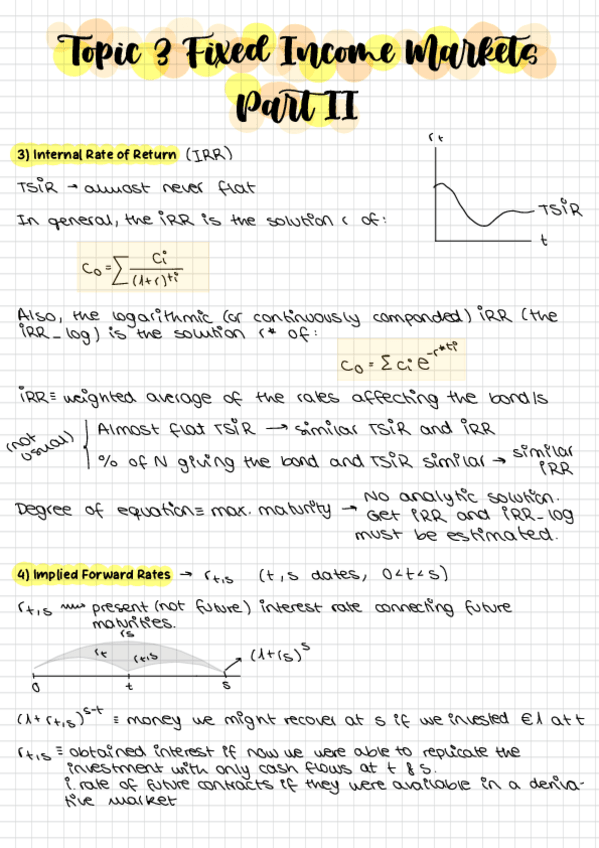 Topic 3 Fixed Income Markets
Part II
3) Internal Rate of Return (IRR)
rt
TSiR → almost never flat
TSiR
t
In general, the iRR is the solution r of:
C₀ = Σ Ci / (1+r)^ti
Also, the logarithmic (or continuously componded) iRR (the
iRR_log) is the solution r* of:
C₀ = Σ Ci e^-r*ti
iRR ≡ weighted average of the rates affecting the bonds
(not usual)
Almost flat TSiR → similar TSiR and iRR
% of N giving the bond and TSiR similar → similar iRR
Degree of equation ≡ max. maturity → No analytic solution.
Get iRR and iRR_log
must be estimated.
4) Implied Forward Rates → rt,s (t,s dates, 0<t<s)
rt,s present (not future) interest rate connecting future
maturities.
rs
rt rt,s (1+rs)^s
0 t s
(1+rt,s)^s-t ≡ money we might recover at s if we invested €1 at t
rt,s ≡ obtained interest if now we were able to replicate the
investment with only cash flows at t & s.
i. rate of future contracts if they were available in a deriva-
tive market